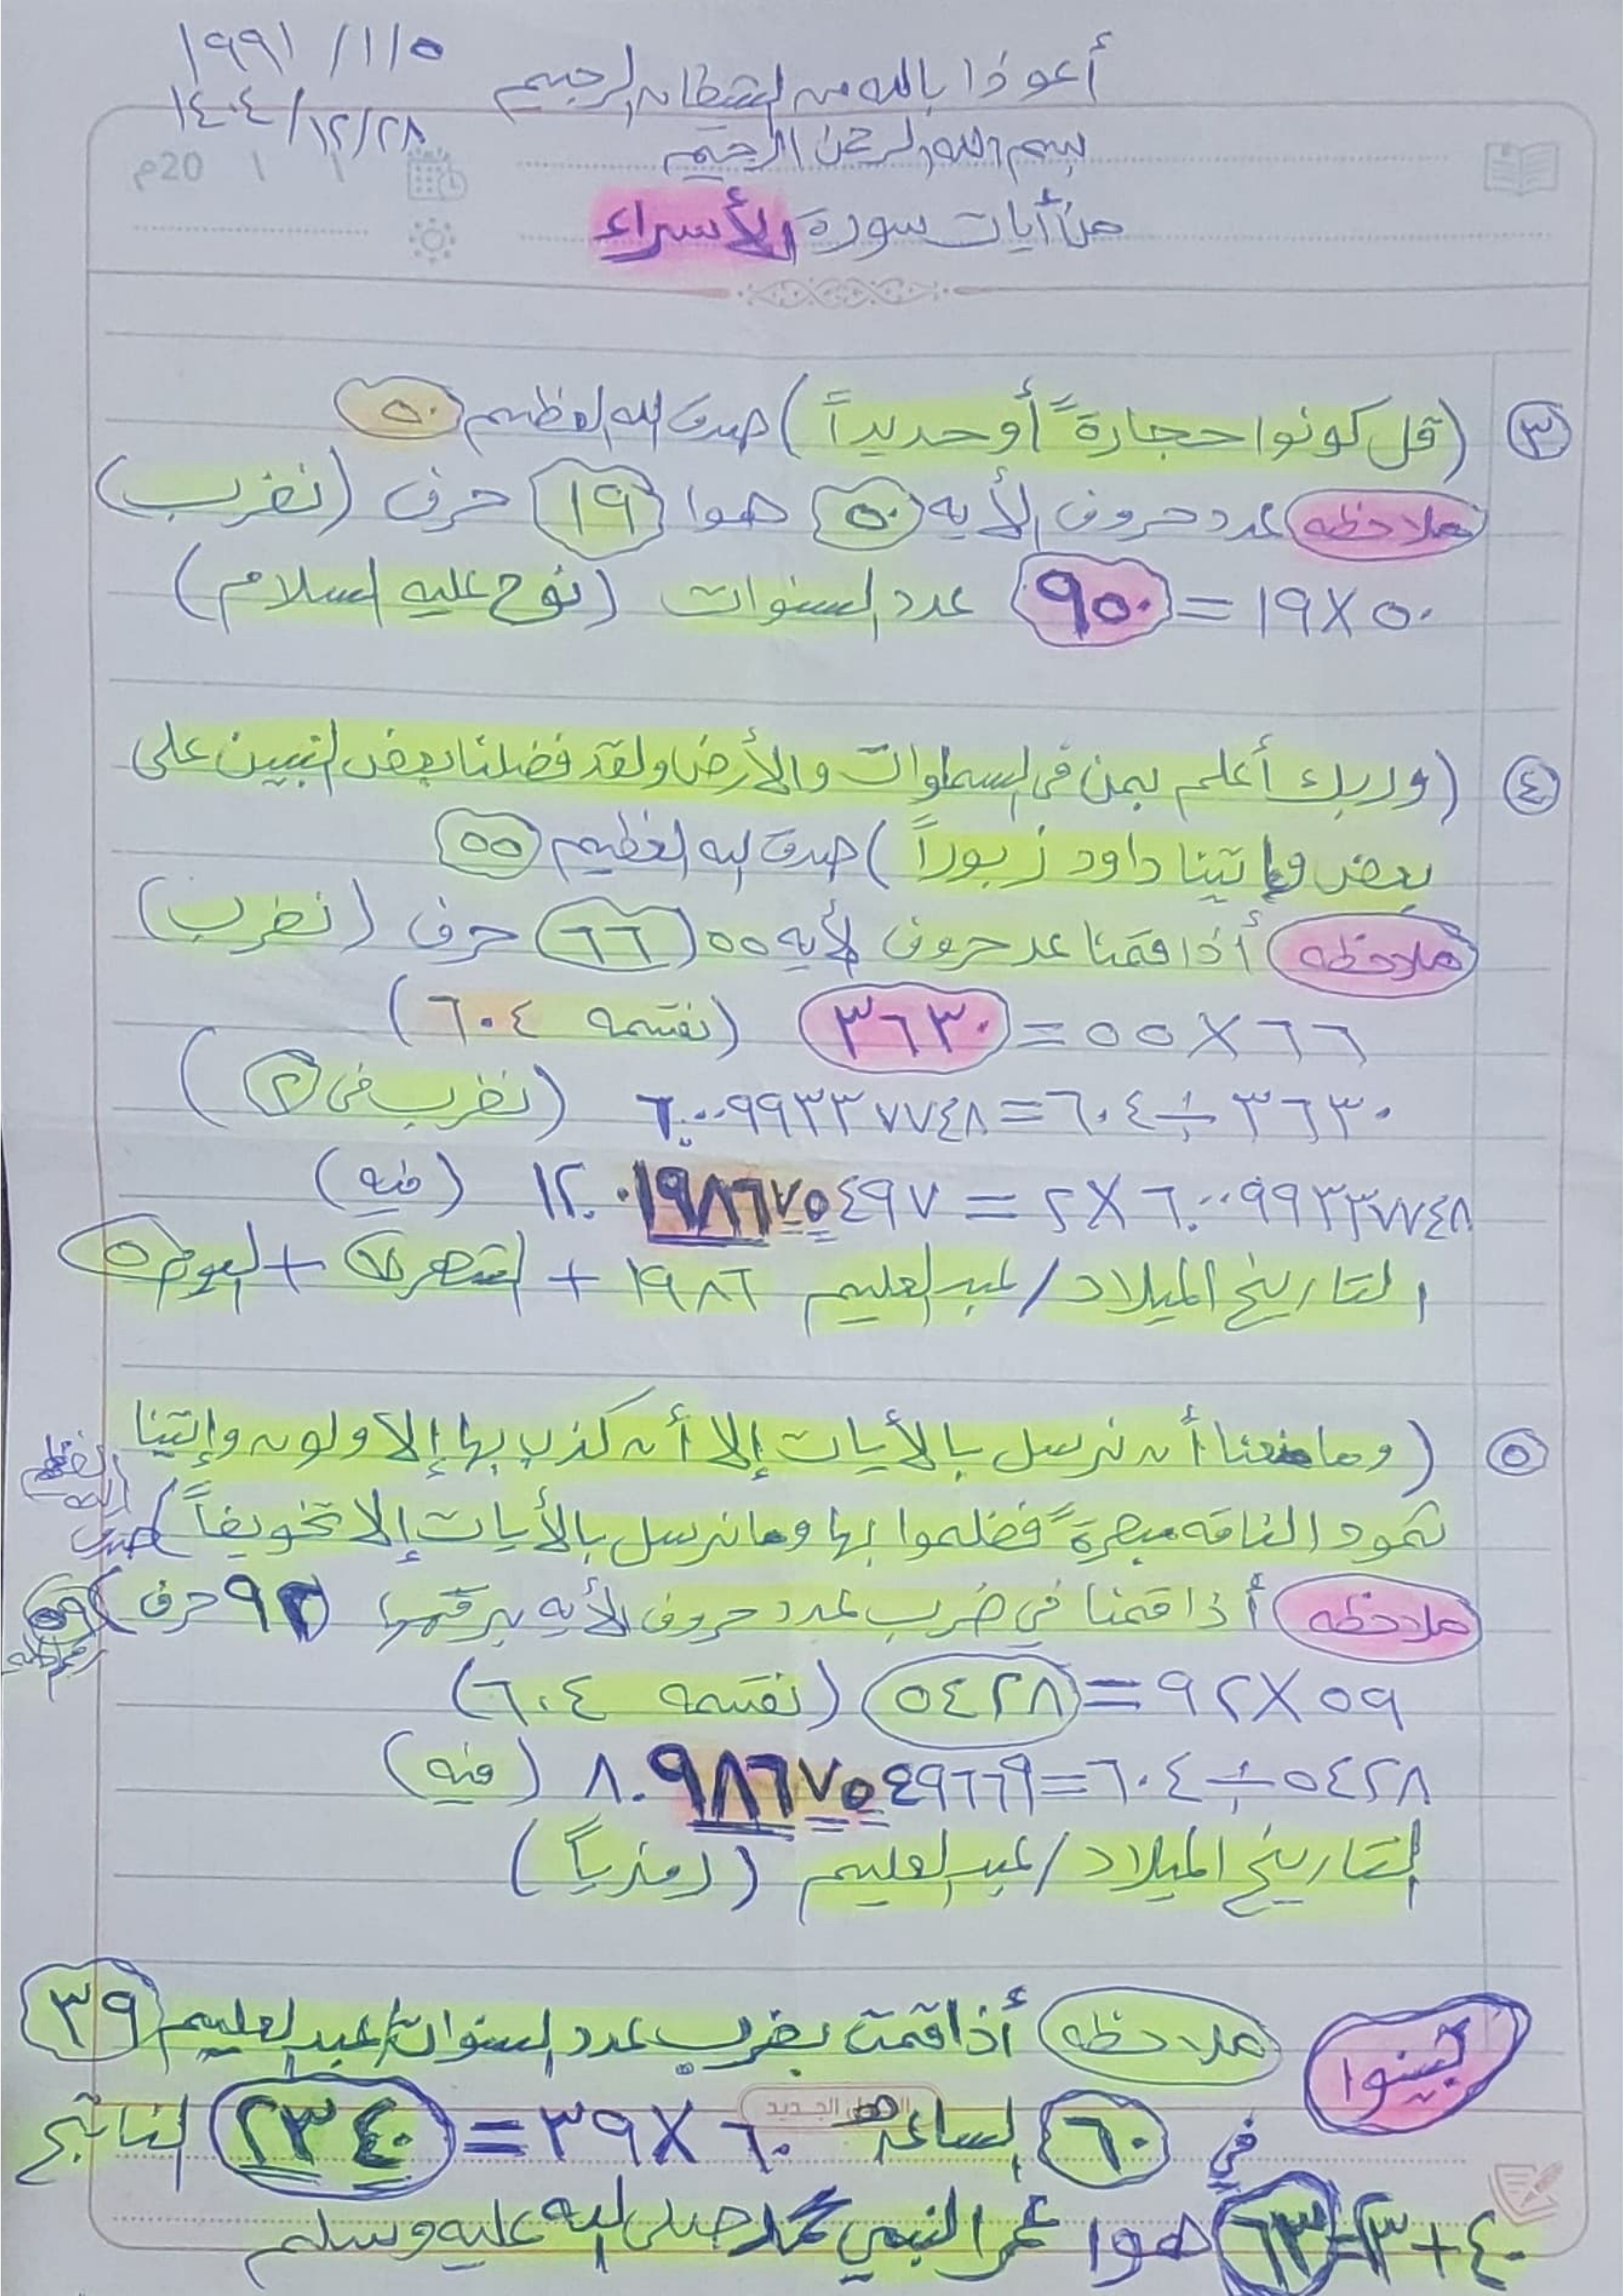 ١٩٩١/١/٥
أعوذا بالله من الشيطان الرجيم
١٤٠٤/١٢/٢٨
بسم الله الرحمن الرحيم
20م
من أيات سورة الأسراء
٣ (قل كونوا حجارةً أو حديداً) صدق الله العظيم ٥٠
ملاحظه عدد حروف الأيه ٥٠ هوا ١٩ حرف (نضرب)
٥٠ × ١٩ = ٩٥٠ عدد السنوات (نوح عليه السلام)
٤ (وربك أعلم بمن في السماوات والأرض ولقد فضلنا بعض النبيين على
بعض وإتينا داود زبوراً) صدق الله العظيم ٥٥
ملاحظه أذا قمنا عد حروف الأيه ٥٥ (٦٦) حرف (نضرب)
٦٦ × ٥٥ = ٣٦٣٠ (نقسمه ٦٠٤)
٣٦٣٠ ÷ ٦٠٤ = ٦.٠٠٩٩٣٣٧٧٤٨ (نضرب في ٢)
٦.٠٠٩٩٣٣٧٧٤٨ × ٢ = ١٢.٠١٩٨٦٧٥٤٩٧ (فيه)
التاريخ الميلاد / عبدالعليم ١٩٨٦ + الشهر ٧ + اليوم ٥
٥ (وما منعنا أن نرسل بالأيات إلا أن كذب بها إلاولون وإتينا
ثمود الناقه مبصرةً فضلموا بها وما نرسل بالأيات إلا تخويفاً) صدق الله العظيم
ملاحظه أذا قمنا في ضرب عدد حروف الأيه برقمها (٩٢ حرف) ٥٩
٥٩ × ٩٢ = ٥٤٢٨ (نقسمه ٦٠٤)
٥٤٢٨ ÷ ٦٠٤ = ٨.٩٨٦٧٥٤٩٦٦٩ (فيه)
التاريخ الميلاد / عبدالعليم (رمزياً)
تبينوا ملاحظه أذا قمت بضرب عدد السنوات / عبدالعليم ٣٩
في ٦٠ الساعه ٦٠ × ٣٩ = ٢٣٤٠ الناتج
٤٠ + ٢٣ = ٦٣ هوا عمر النبي محمد صلى الله عليه وسلم